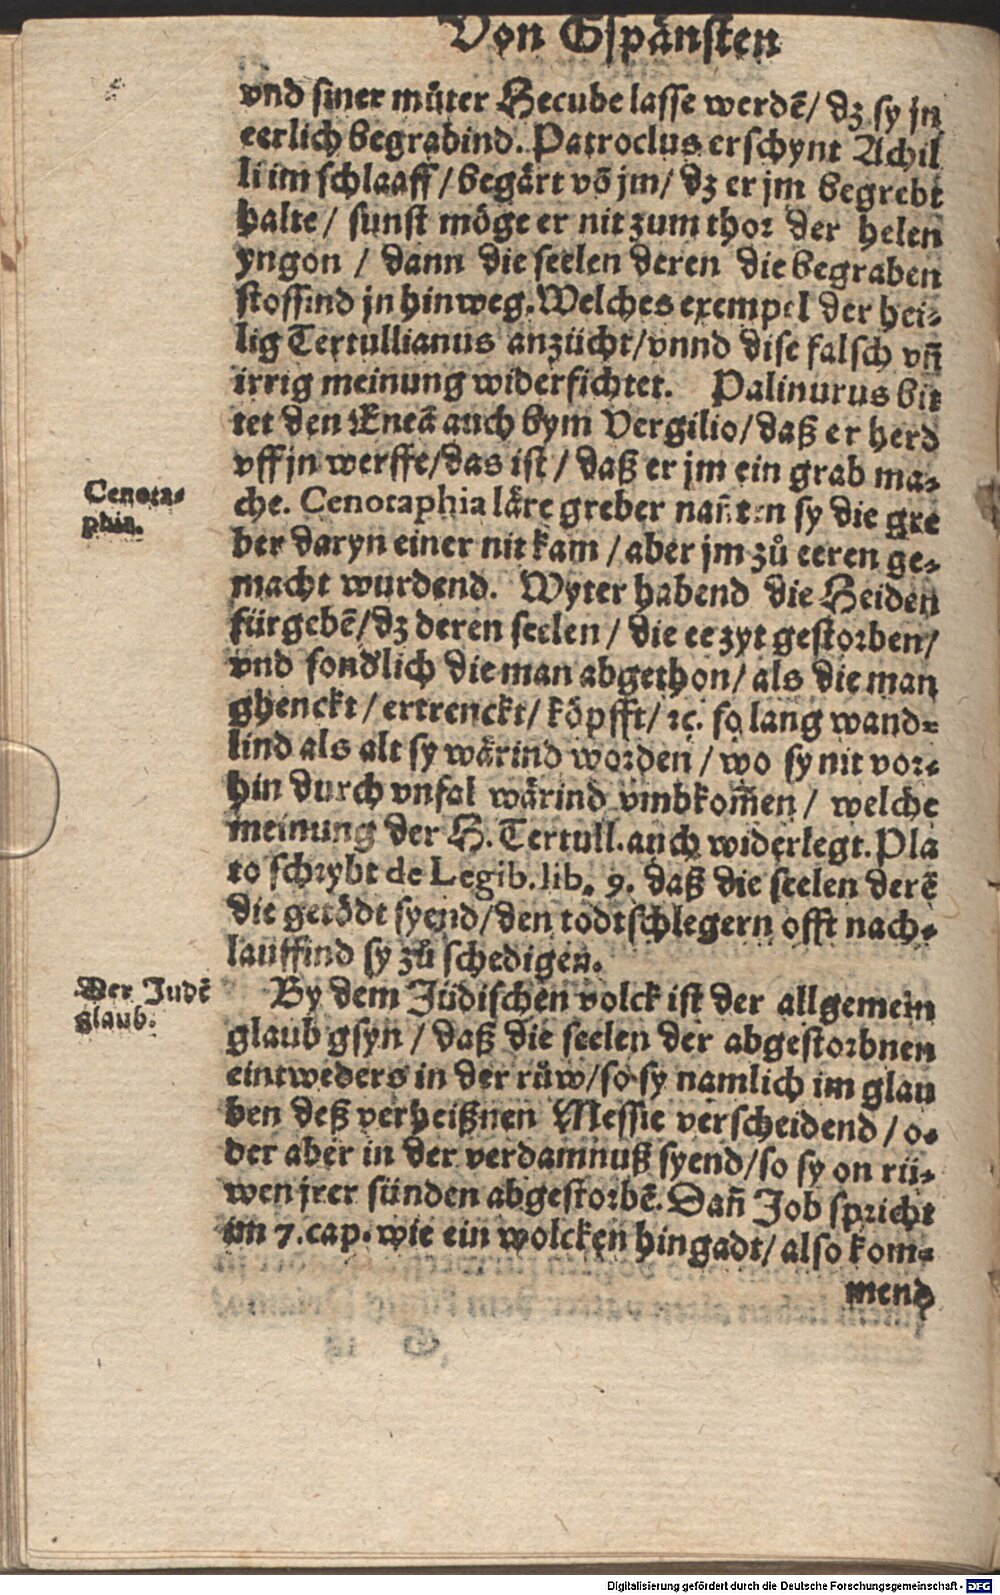 Von Gspänsten
vnd siner můter Hecube lasse werdẽ/ dz sy jn
eerlich begrabind. Patroclus erschynt Achil
li im schlaaff/ begärt võ jm/ dz er jm begrebt
halte/ sunst möge er nit zum thor der helen
yngon / dann die seelen deren die begraben
stossind jn hinweg. Welches exempel der hei-
lig Tertullianus anzücht/ vnnd dise falsch vñ
irrig meinung widerfichtet. Palinurus bit
tet den Æneã auch bym Vergilio/ daß er herd
vff jn werffe/ das ist / daß er jm ein grab ma-
Cenota-
phia.
che. Cenotaphia läre greber nañten sy die gre
ber daryn einer nit kam / aber jm zů eeren ge-
macht wurdend. Wyter habend die Heiden
fürgebẽ/ dz deren seelen / die ee zyt gestorben/
vnd sondlich die man abgethon/ als die man
ghenckt/ ertrenckt/ köpfft/ ꝛc. so lang wand-
lind als alt sy wärind worden / wo sy nit vor-
hin durch vnfal wärind vmbkom̃en / welche
meinung der H. Tertull. auch widerlegt. Pla
to schrybt de Legib. lib. 9. daß die seelen derẽ
die getödt syend/ den todtschlegern offt nach-
lauffind sy zů schedigen.
Der Judẽ
glaub.
By dem Jüdischen volck ist der allgemein
glaub gsyn / daß die seelen der abgestorbnen
eintweders in der růw/ so sy namlich im glau
ben deß verheißnen Messie verscheidend / o-
der aber in der verdamnuß syend/ so sy on rü-
wen jrer sünden abgestorbẽ. Dañ Job spricht
im 7. cap. wie ein wolcken hingadt/ also kom-
mend
Digitalisierung gefördert durch die Deutsche Forschungsgemeinschaft - DFG